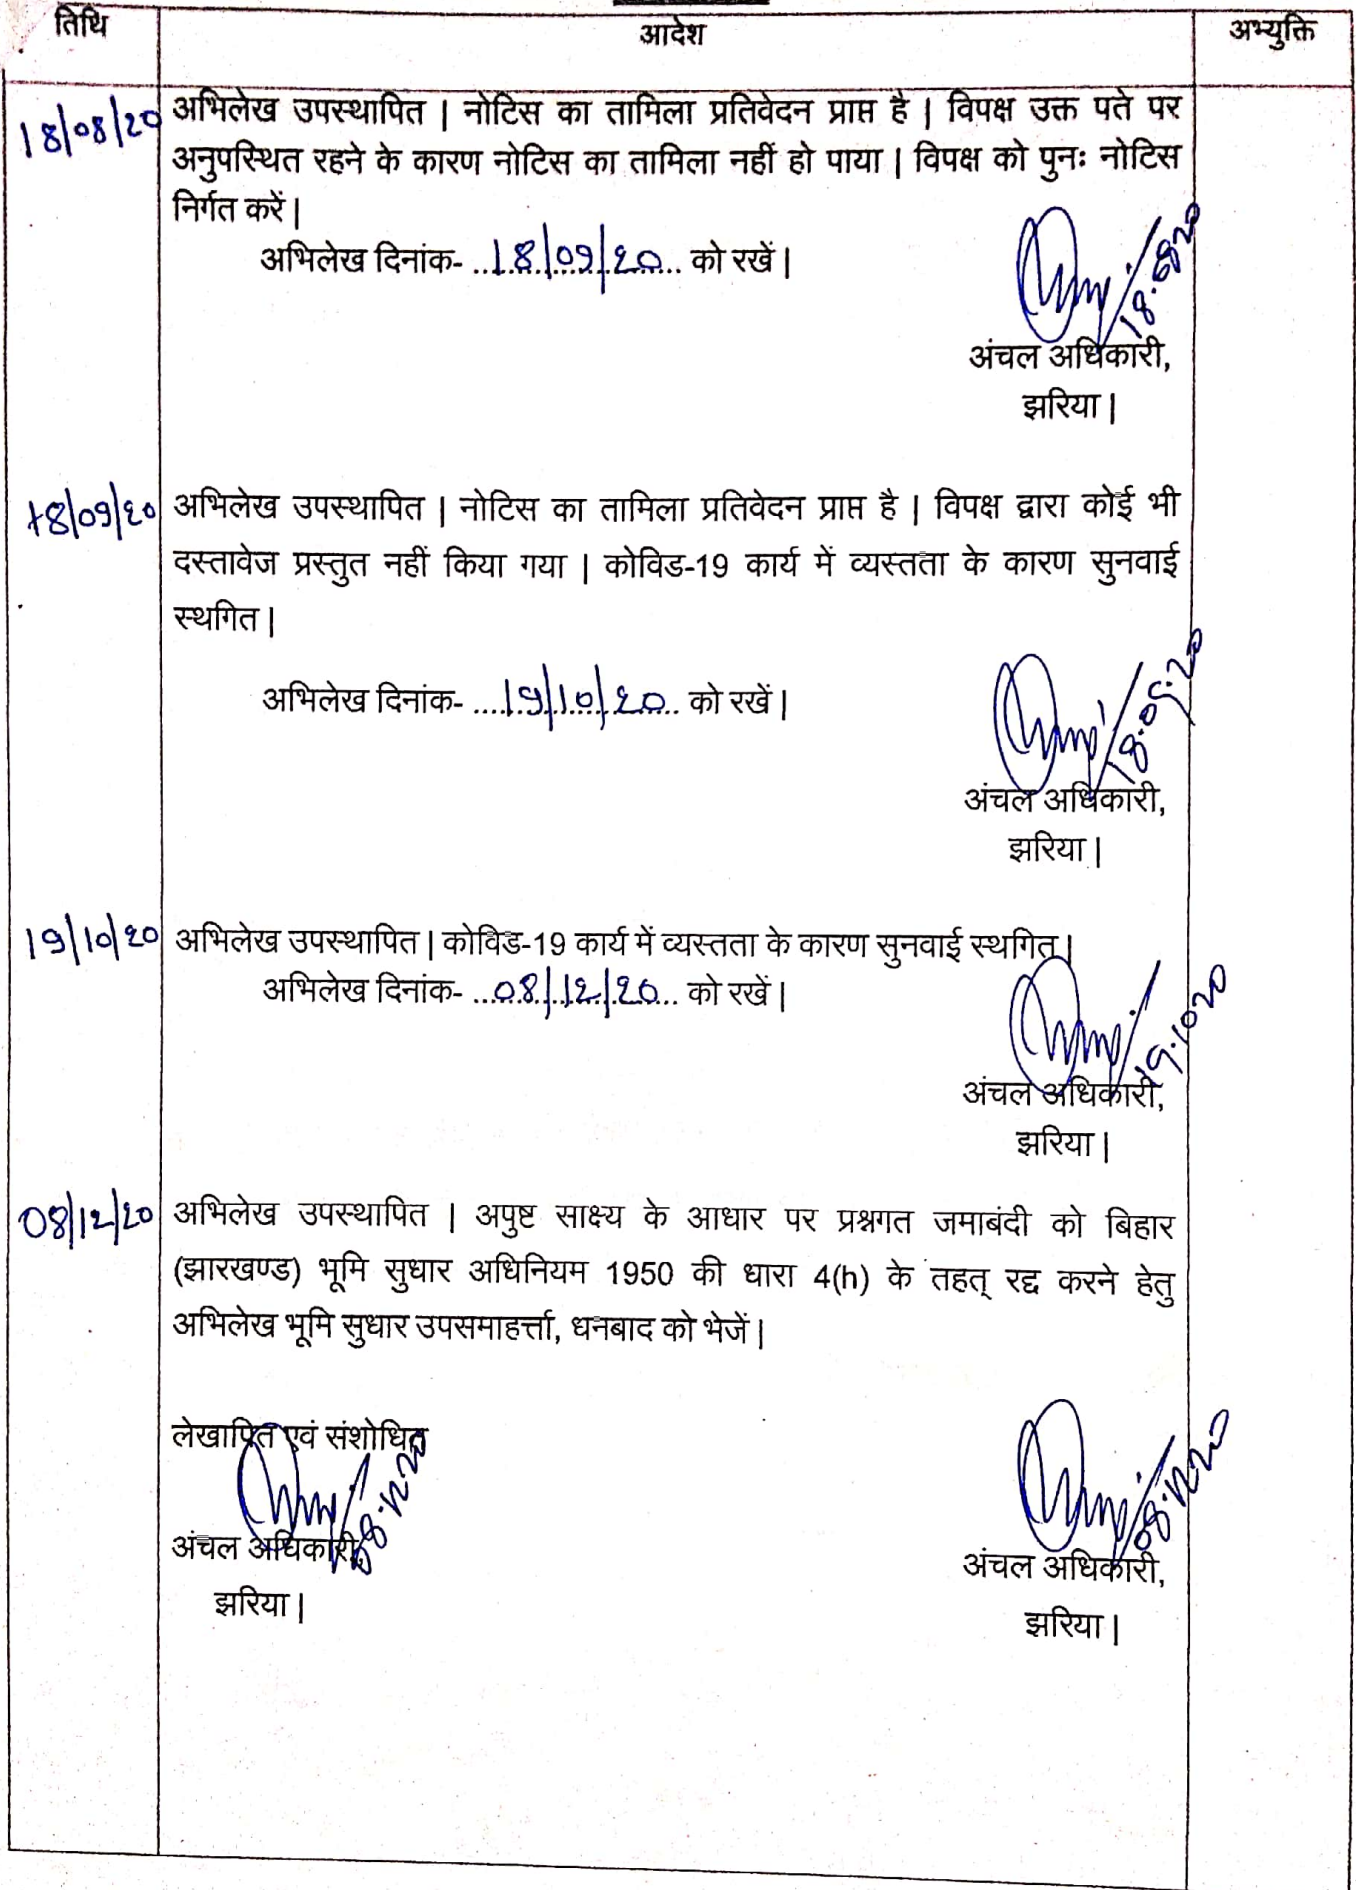 तिथि आदेश अभ्युक्ति
18/08/20 अभिलेख उपस्थापित | नोटिस का तामिला प्रतिवेदन प्राप्त है | विपक्ष उक्त पते पर
अनुपस्थित रहने के कारण नोटिस का तामिला नहीं हो पाया | विपक्ष को पुनः नोटिस
निर्गत करें |
अभिलेख दिनांक- ...18/09/20... को रखें |
18.08.20
अंचल अधिकारी,
झरिया |
18/09/20 अभिलेख उपस्थापित | नोटिस का तामिला प्रतिवेदन प्राप्त है | विपक्ष द्वारा कोई भी
दस्तावेज प्रस्तुत नहीं किया गया | कोविड-19 कार्य में व्यस्तता के कारण सुनवाई
स्थगित |
अभिलेख दिनांक- ...19/10/20... को रखें |
18.09.20
अंचल अधिकारी,
झरिया |
19/10/20 अभिलेख उपस्थापित | कोविड-19 कार्य में व्यस्तता के कारण सुनवाई स्थगित |
अभिलेख दिनांक- ...08/12/20... को रखें |
19.10.20
अंचल अधिकारी,
झरिया |
08/12/20 अभिलेख उपस्थापित | अपुष्ट साक्ष्य के आधार पर प्रश्नगत जमाबंदी को बिहार
(झारखण्ड) भूमि सुधार अधिनियम 1950 की धारा 4(h) के तहत् रद्द करने हेतु
अभिलेख भूमि सुधार उपसमाहर्त्ता, धनबाद को भेजें |
लेखापित एवं संशोधित
08.12.20 08.12.20
अंचल अधिकारी, अंचल अधिकारी,
झरिया | झरिया |